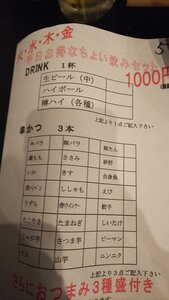 火・水・木・金
平日お得なちょい飲みセット
1000円
DRINK 1杯
生ビール (中)
ハイボール
樽ハイ (各種)
上記より1点ご記入下さい
串かつ 3本
豚バラ 豚たん
鶏もも ささみ 砂肝
いか きす 白身魚
ししゃも えび
うずら 餃子
たこやき たまねぎ しいたけ
じゃが芋 さつま芋 ピーマン
山芋 ニンニク
上記より3点ご記入下さい
さらにおつまみ3種盛り付き